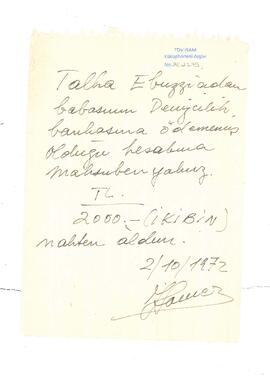 TDV İSAM
Kütüphanesi Arşivi
No
Talha Ebuzziadan
babasının Denizcilik
bankasına ödemenmiş
olduğu hesabına
Mahsuben yalnız.
TL.
2000.- (İKİBİN)
nakten aldım.
2/10/1972